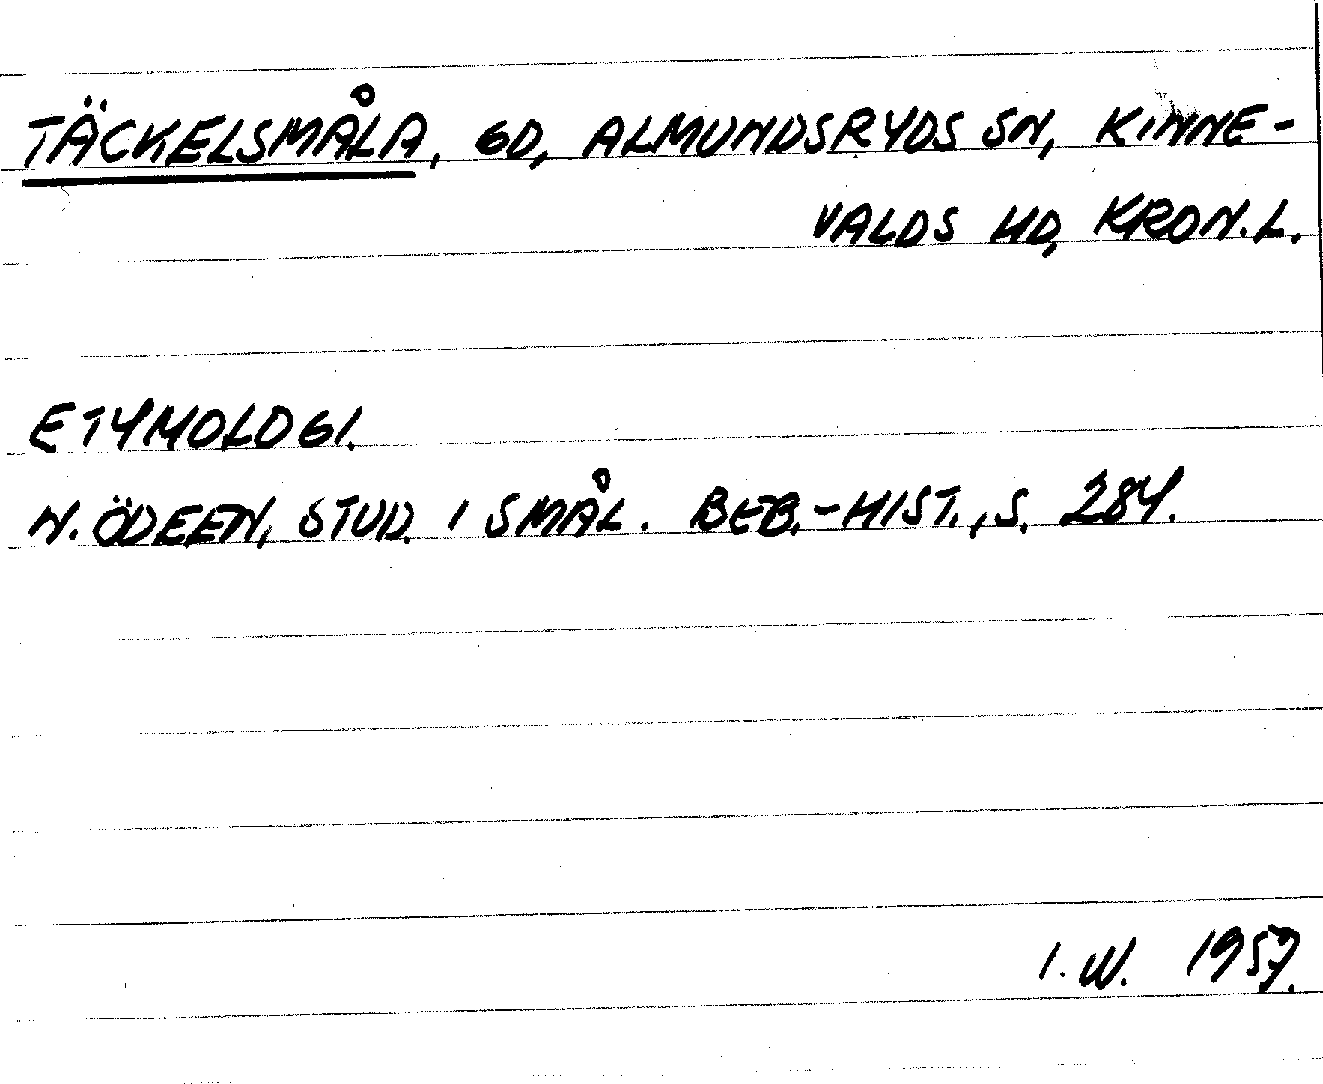 TÄCKELSMÅLA, GD, ALMUNDSRYDS SN, KINNE-
VALDS HD, KRON.L.
ETYMOLOGI.
N. ÖDEEN, STUD. I SMÅL. BEB.-HIST., S. 284.
I.W. 1957.